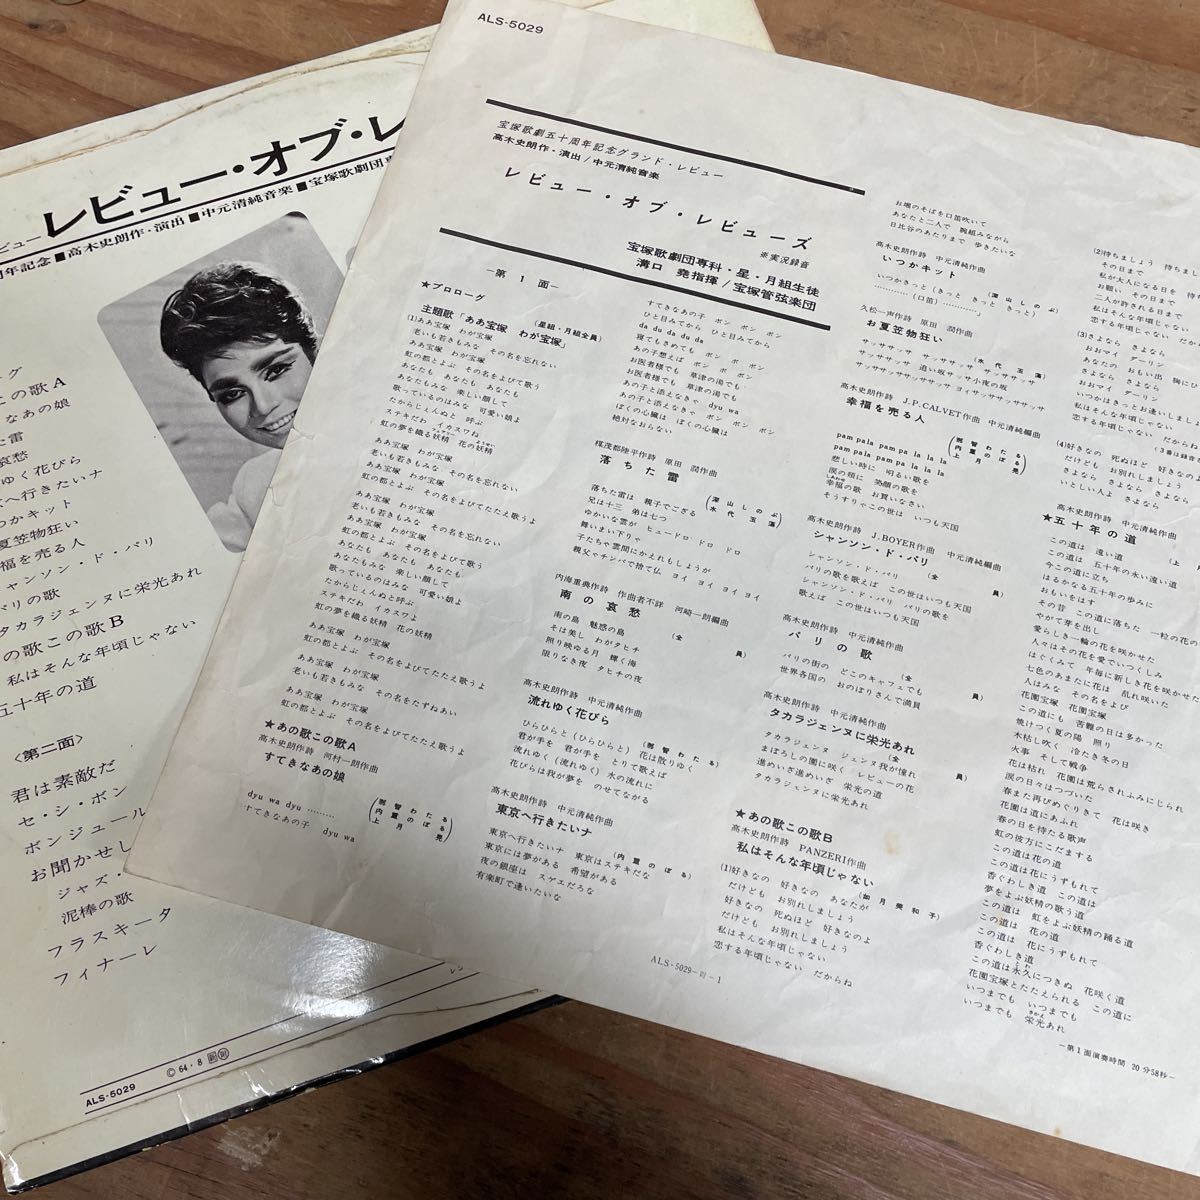 ALS-5029
宝塚歌劇五十周年記念グランド・レビュー
高木史朗作・演出/中元清純音楽
レビュー・オブ・レビューズ
※実況録音
宝塚歌劇団専科・星・月組生徒
溝口 堯指揮/宝塚管弦楽団
—第1面—
★プロローグ
主題歌「ああ宝塚 わが宝塚」
(星組・月組全員)
(1)ああ宝塚 わが宝塚
老いも若きもみな その名を忘れない
ああ宝塚 わが宝塚
虹の都とぶ その名をよびて歌う
あなたも あなたも あなたも
あなたもみな 楽しい顔して
歌っているのはみな 可愛い娘よ
たからじぇんぬと 呼ぶ
ステキだわ イカスワね
虹の夢を織る妖精 花の妖精
ああ宝塚 わが宝塚
老いも若きもみな その名を忘れない
ああ宝塚 わが宝塚
虹の都とよぶ その名をよびてたたえ歌うよ
ああ宝塚 わが宝塚
老いも若きもみな その名を忘れない
ああ宝塚 わが宝塚
虹の都とよぶ その名をよびて歌う
あなたも あなたも あなたも
あなたもみな 楽しい顔して
歌っているのはみな 可愛い娘よ
たからじぇんぬと呼ぶ
ステキだわ イカスワよ
虹の夢を織る妖精 花の妖精
ああ宝塚 わが宝塚
虹の都とよぶ その名をよびてたたえ歌うよ
ああ宝塚 わが宝塚
老いも若きもみな その名をたずねあい
ああ宝塚 わが宝塚
虹の都とよぶ その名をよびてたたえ歌うよ
★あの歌この歌A
高木史朗作詩 河村一朗作曲
すてきなあの娘
dyu wa dyu ………
すてきなあの子 dyu wa
すてきなあの子 ボン ボン ボン
ひと目みてから ひと目みてから
da du du da
寝てもさめても ボン ボン
あの子想えば ボン ボン ボン
お医者様でも 草津の湯でも
お医者様でも 草津の湯でも
あの子と添えなきゃ dyu wa
あの子と添えなきゃ ボン ボン ボン
ぼくの心臓は ぼくの心臓は
絶対なおらない
楳茂都陸平作詩 原田 潤作曲
落ちた雷
落ちた雷は 親子でござる
兄は十三 弟は七つ
ゆかいな雲が ヒュードロ ドロ ドロ
舞いまい下りゃ
子たちゃ雲間にかえれもしようが
親父ゃチンバで捨て仏 ヨイ ヨイ ヨイ ヨイ
内海重典作詩 作曲者不詳 河崎一朗編曲
南の哀愁
(全員)
南の島 魅惑の島
そは美し わがタヒチ
照り映ゆる月 輝く海
限りなき夜 タヒチの夜
高木史朗作詩 中元清純作曲
流れゆく花びら
ひらひらと(ひらひらと) 花は散りゆく
君が手を 君が手を とりて歌えば
流れゆく(流れゆく) 水の流れに
花びらは我が夢を のせてながる
高木史朗作詩 中元清純作曲
東京へ行きたいナ
東京へ行きたいナ 東京はステキだな
東京には夢がある 希望がある
夜の銀座は スゲエだろな
有楽町で逢いたいな
お堀のそばを口笛吹いて
あなたと二人で 腕組みながら
日比谷のあたりまで 歩きたいな
高木史朗作詩 中元清純作曲
いつかキット
いつかきっと(きっと きっと きっと)
…………(口笛)…………
久松一声作詩 原田 潤作曲
お夏笠物狂い
高木史朗作詩 J.P.CALVET作曲 中元清純編曲
幸福を売る人
pam pala pam pa la la la
pam pala pam pa la la la
悲しい時に 明るい歌を
涙の頬に 笑顔の歌を
幸福の歌 お買いなさい
そうすりゃこの世は いつも天国
高木史朗作詩 J.BOYER作曲 中元清純編曲
シャンソン・ド・パリ
(全員)
シャンソン・ド・パリ
パリの歌を歌えば この世はいつも天国
シャンソン・ド・パリ パリの歌を
歌えば この世はいつも天国
高木史朗作詩 中元清純作曲
パリの歌
(全員)
パリの街の どこのキャフェでも
世界各国の おのぼりさんで満員
高木史朗作詩 中元清純作曲
タカラジェンヌに栄光あれ
(全員)
タカラジェンヌ ジェンヌ我が憧れ
まぼろしの園に咲く レビューの花
進めいざ進めいざ 栄光の道
タカラジェンヌに栄光あれ
★あの歌この歌B
高木史朗作詩 PANZERI作曲
私はそんな年頃じゃない
(如月美和子)
(1)好きなの 好きなの あなたが
だけども お別れしましょう
好きなの 死ぬほど 好きなのよ
だけども お別れしましょう
私はそんな年頃じゃない
恋する年頃じゃない だからね
(2)待ちましょう 待ちま
その日まで
私が大人になる日を
お願い その日まで
二人が許される日まで
恋する年頃じゃない だから
(3)さよなら さよなら
おおマイ ダーリン
あなたの おもい出 胸に
さよなら さよなら
おおマイ ダーリン
いつかはきっとお逢いしましょ
私はそんな年頃じゃない
恋する年頃じゃない だから
(4)好きなの 死ぬほど 好きなの
だけども お別れしましょう
さよなら さよなら さよなら
いとしい人よ さよなら
高木史朗作詩 中元清純作曲
★五十年の道
この道は 遠い道
この道は 五十年の永い遠い道
今この道に立ち
はるかなる五十年の歩みに
おもいをはす
その昔 この道に落ちた 一粒の花の
やがて芽を出し
愛らしき一輪の花を咲かせた
人々はその花を愛でいつくしみ
はぐくみて 年毎に新しき花を咲かせた
七色のあまたに花は 乱れ咲いた
人はみな その名をよび
花園宝塚 花園宝塚
この道にも 苦難の日は多かった
焼けつく夏の陽 照り
木枯し吹く 冷たき冬の日
火事 そして戦争
花は枯れ 花園は荒らされふみにじられ
涙の日々はつづいた
春また再びめぐりきて 花は咲き
花園は道にあふれ
春の日を待たる歌声
虹の彼方にこだまする
この道は花の道
この道は 花にうずもれて
香ぐわしき道 この道は
夢をよぶ妖精の歌う道
この道は 虹をよぶ妖精の踊る道
この道は 花の道
この道は 花にうずもれて
香ぐわしき道
この道は永久につきぬ 花咲く道
花園宝塚とたたえられる この道に
いつまでも いつまでも
いつまでも 栄光あれ
—第1面演奏時間 20分58秒—
レビュー・オブ・レ
ビュー
周年記念■高木史朗作・演出■中元清純音楽■宝塚歌劇団
この歌A
なあの娘
た雷
哀愁
ゆく花びら
へ行きたいナ
つかキット
夏笠物狂い
福を売る人
シャンソン・ド・パリ
パリの歌
タカラジェンヌに栄光あれ
の歌この歌B
私はそんな年頃じゃない
五十年の道
〈第二面〉
君は素敵だ
セ・シ・ボン
ボンジュール
お聞かせし
ジャズ・
泥棒の歌
フラスキータ
フィナーレ
ALS-5029
©64・8